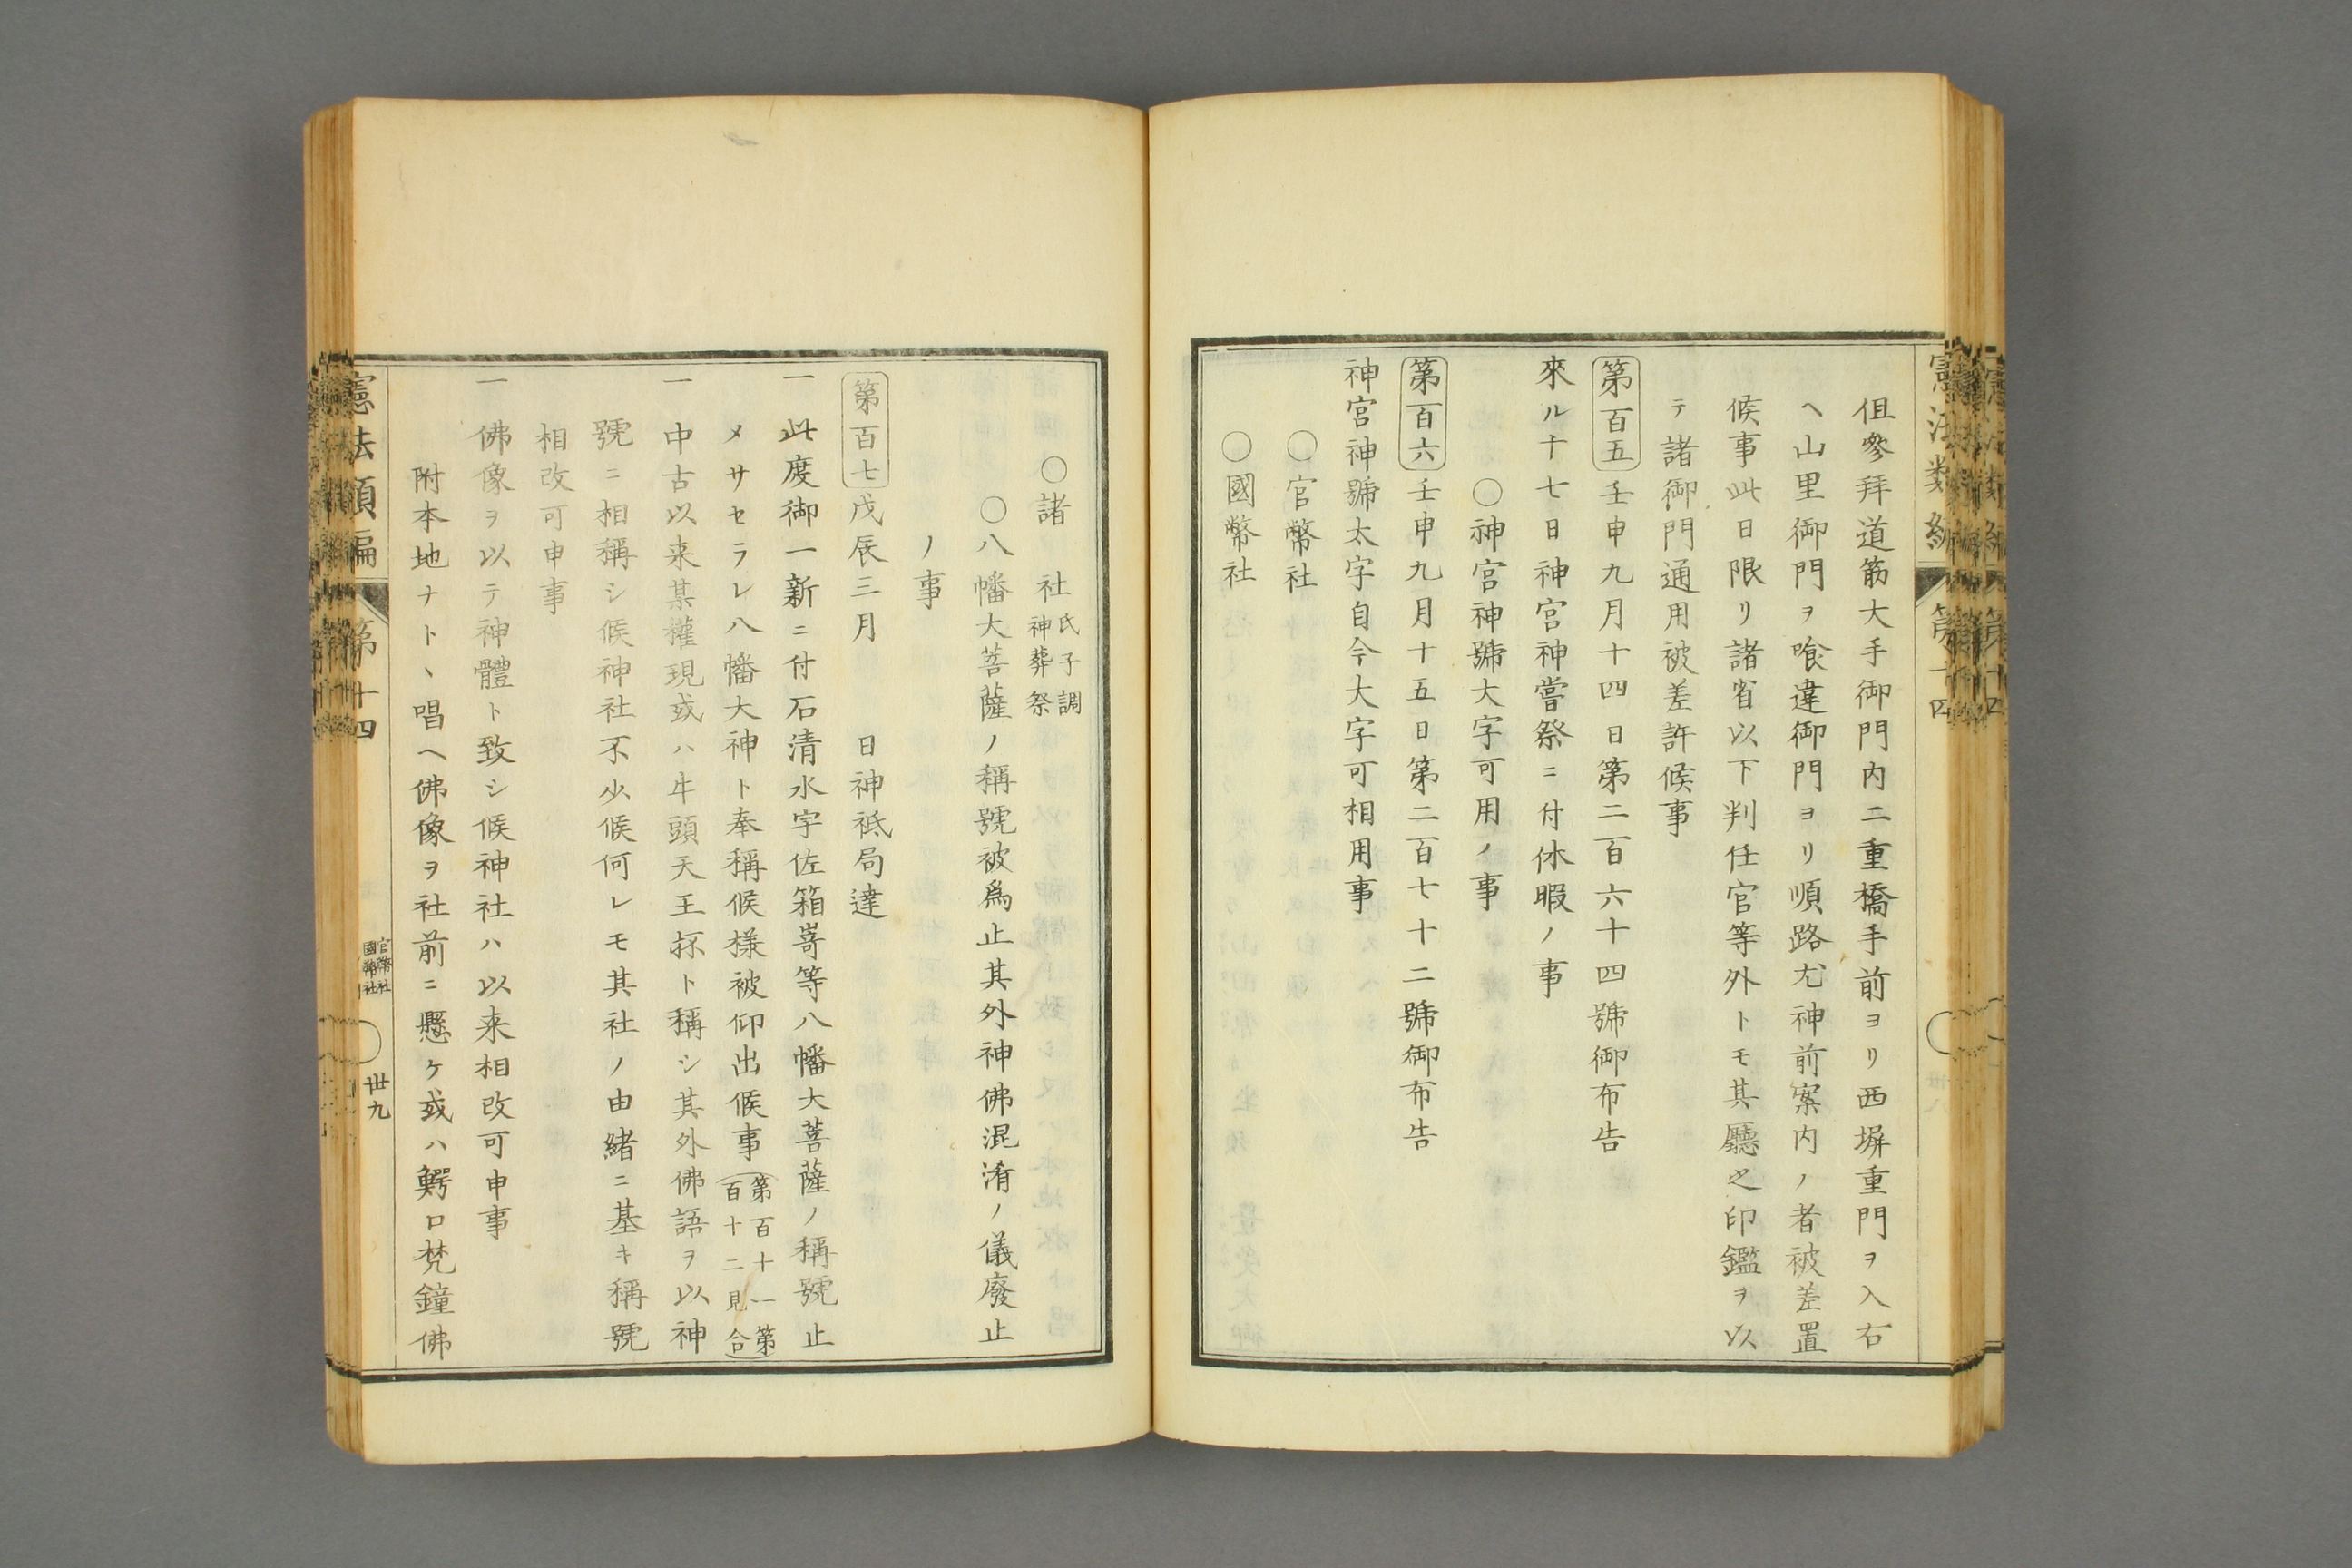 伹參拜道筋大手御門内二重橋手前ヨリ西塀重門ヲ入右
ヘ山里御門ヲ喰違御門ヨリ順路尤神前案内ノ者被差置
候事此日限リ諸省以下判任官等外トモ其廳之印鑑ヲ以
テ諸御門通用被差許候事
第百五壬申九月十四日第二百六十四號御布告
來ル十七日神宮神嘗祭ニ付休暇ノ事
〇神宮神號大字可用ノ事
第百六壬申九月十五日第二百七十二號御布告
神宮神號太字自今大字可相用事
〇官幣社
〇國幣社
〇諸社氏子調神葬祭
〇八幡大菩薩ノ稱號被爲止其外神佛混淆ノ儀廢止
ノ事
第百七戊辰三月 日神祇局達
一此度御一新ニ付石清水宇佐箱嵜等八幡大菩薩ノ稱號止
メサセラレ八幡大神ト奉稱候樣被仰出候事(第百十一第百十二見合)
一中古以來某權現或ハ牛頭天王抔ト稱シ其外佛語ヲ以神
號ニ相稱シ候神社不少候何レモ其社ノ由緒ニ基キ稱號
相改可申事
一佛像ヲ以テ神體ト致シ候神社ハ以来相改可申事
附本地ナト丶唱ヘ佛像ヲ社前ニ懸ケ或ハ鰐口梵鐘佛
憲法類編 第十四 官幣社國幣社 卅九